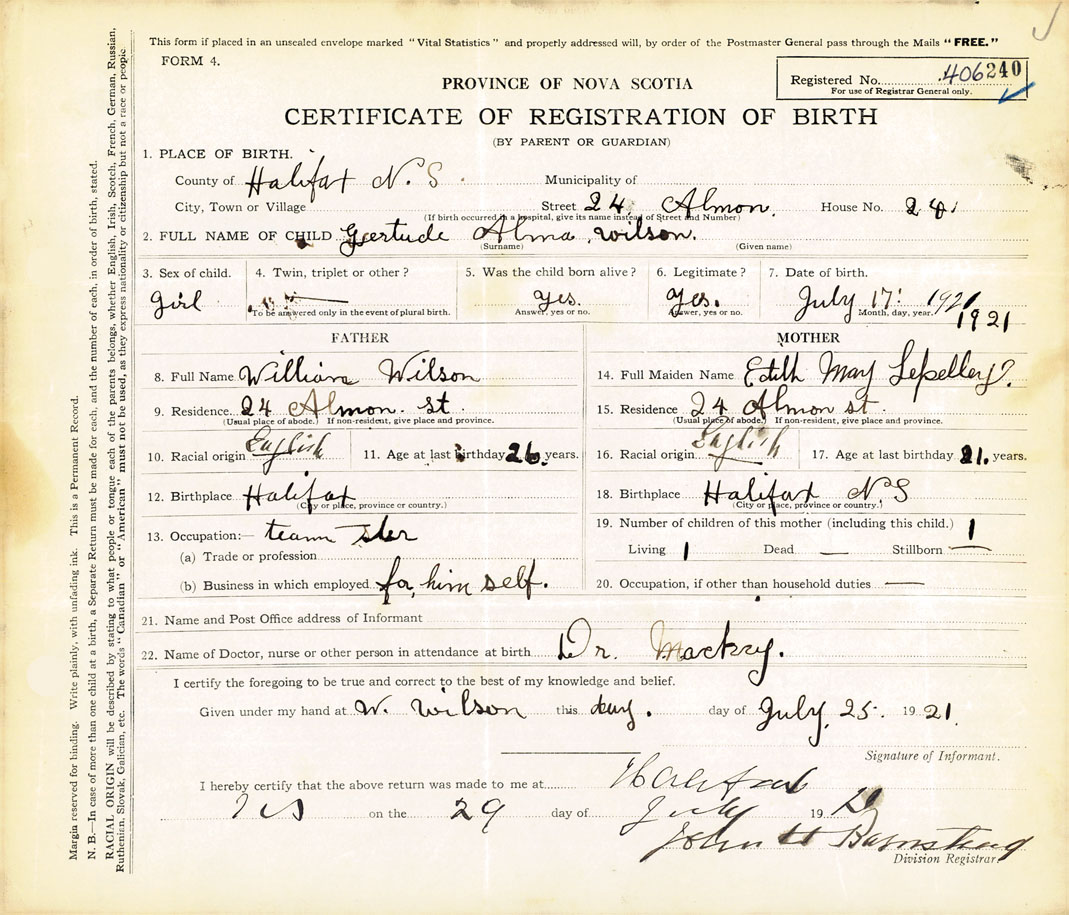 This form if placed in an unsealed envelope marked "Vital Statistics" and properly addressed will, by order of the Postmaster General pass through the Mails "FREE."
FORM 4.
Registered No. 406240
For use of Registrar General only.
PROVINCE OF NOVA SCOTIA
CERTIFICATE OF REGISTRATION OF BIRTH
(BY PARENT OR GUARDIAN)
1. PLACE OF BIRTH.
County of Halifax N.S. Municipality of
City, Town or Village Street 24 Almon. House No. 24.
(If birth occurred in a hospital, give its name instead of Street and Number)
2. FULL NAME OF CHILD Gertude Alma wilson.
(Surname) (Given name)
3. Sex of child. 4. Twin, triplet or other? 5. Was the child born alive? 6. Legitimate? 7. Date of birth.
Girl Yes. Yes. July 17 1921
To be answered only in the event of plural birth. Answer, yes or no. Answer, yes or no. Month, day, year. 1921
FATHER MOTHER
8. Full Name William Wilson 14. Full Maiden Name Edith May
9. Residence 24 Almon. st. 15. Residence 24 Almon st.
(Usual place of abode.) If non-resident, give place and province. (Usual place of abode.) If non-resident, give place and province.
10. Racial origin English 11. Age at last birthday 26. years. 16. Racial origin English 17. Age at last birthday 21. years.
12. Birthplace Halifax 18. Birthplace Halifax N.S
(City or place, province or country.) (City or place, province or country.)
13. Occupation:— team ster 19. Number of children of this mother (including this child.) 1
(a) Trade or profession Living 1 Dead — Stillborn —
(b) Business in which employed for him self. 20. Occupation, if other than household duties —
21. Name and Post Office address of Informant
22. Name of Doctor, nurse or other person in attendance at birth Dr. Mackay.
I certify the foregoing to be true and correct to the best of my knowledge and belief.
Given under my hand at W. Wilson this day. day of July 25. 1921.
Signature of Informant.
I hereby certify that the above return was made to me at Halifax
NS on the 29 day of July 19 21
John H Barnstead
Division Registrar
Margin reserved for binding. Write plainly, with unfading ink. This is a Permanent Record.
N. B.—In case of more than one child at a birth, a Separate Return must be made for each, and the number of each, in order of birth, stated.
RACIAL ORIGIN will be described by stating to what people or tongue each of the parents belongs, whether English, Irish, Scotch, French, German, Russian,
Ruthenian, Slovak, Galician, etc. The words "Canadian" or "American" must not be used, as they express nationality or citizenship but not a race or people.